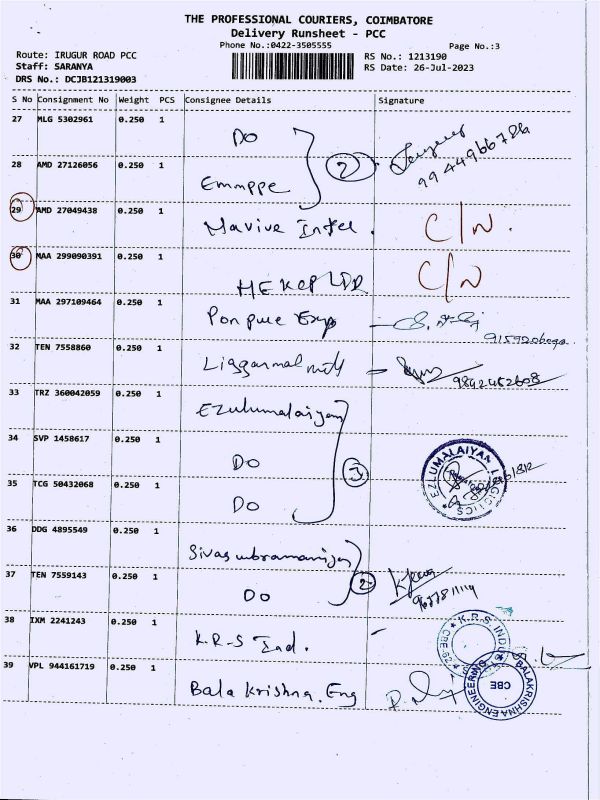 THE PROFESSIONAL COURIERS, COIMBATORE
Delivery Runsheet - PCC
Phone No.:0422-3505555 Page No.:3
Route: IRUGUR ROAD PCC RS No.: 1213190
Staff: SARANYA RS Date: 26-Jul-2023
DRS No.: DCJB121319003
S No Consignment No Weight PCS Consignee Details Signature
27 MLG 5302961 0.250 1
DO
9944966786
28 AMD 27126056 0.250 1
Emmppe
2
29 AMD 27049438 0.250 1
C/N.
30 MAA 299090391 0.250 1
C/N
31 MAA 297109464 0.250 1
Ponpure Exp
32 TEN 7558860 0.250 1
9842452608
33 TRZ 360042059 0.250 1
Ezulumalaiyan
34 SVP 1458617 0.250 1
DO
3
EZLUMALAIYAN LOGICTICS
35 TCG 50432068 0.250 1
DO
36 DDG 4895549 0.250 1
Sivasubramaniyan
2
37 TEN 7559143 0.250 1
DO
38 IXM 2241243 0.250 1
K.R.S Ind.
K.R.S. INDU
39 VPL 944161719 0.250 1
Bala Krishna. Eng
BALAKRISHNA ENGINEERING
CBE